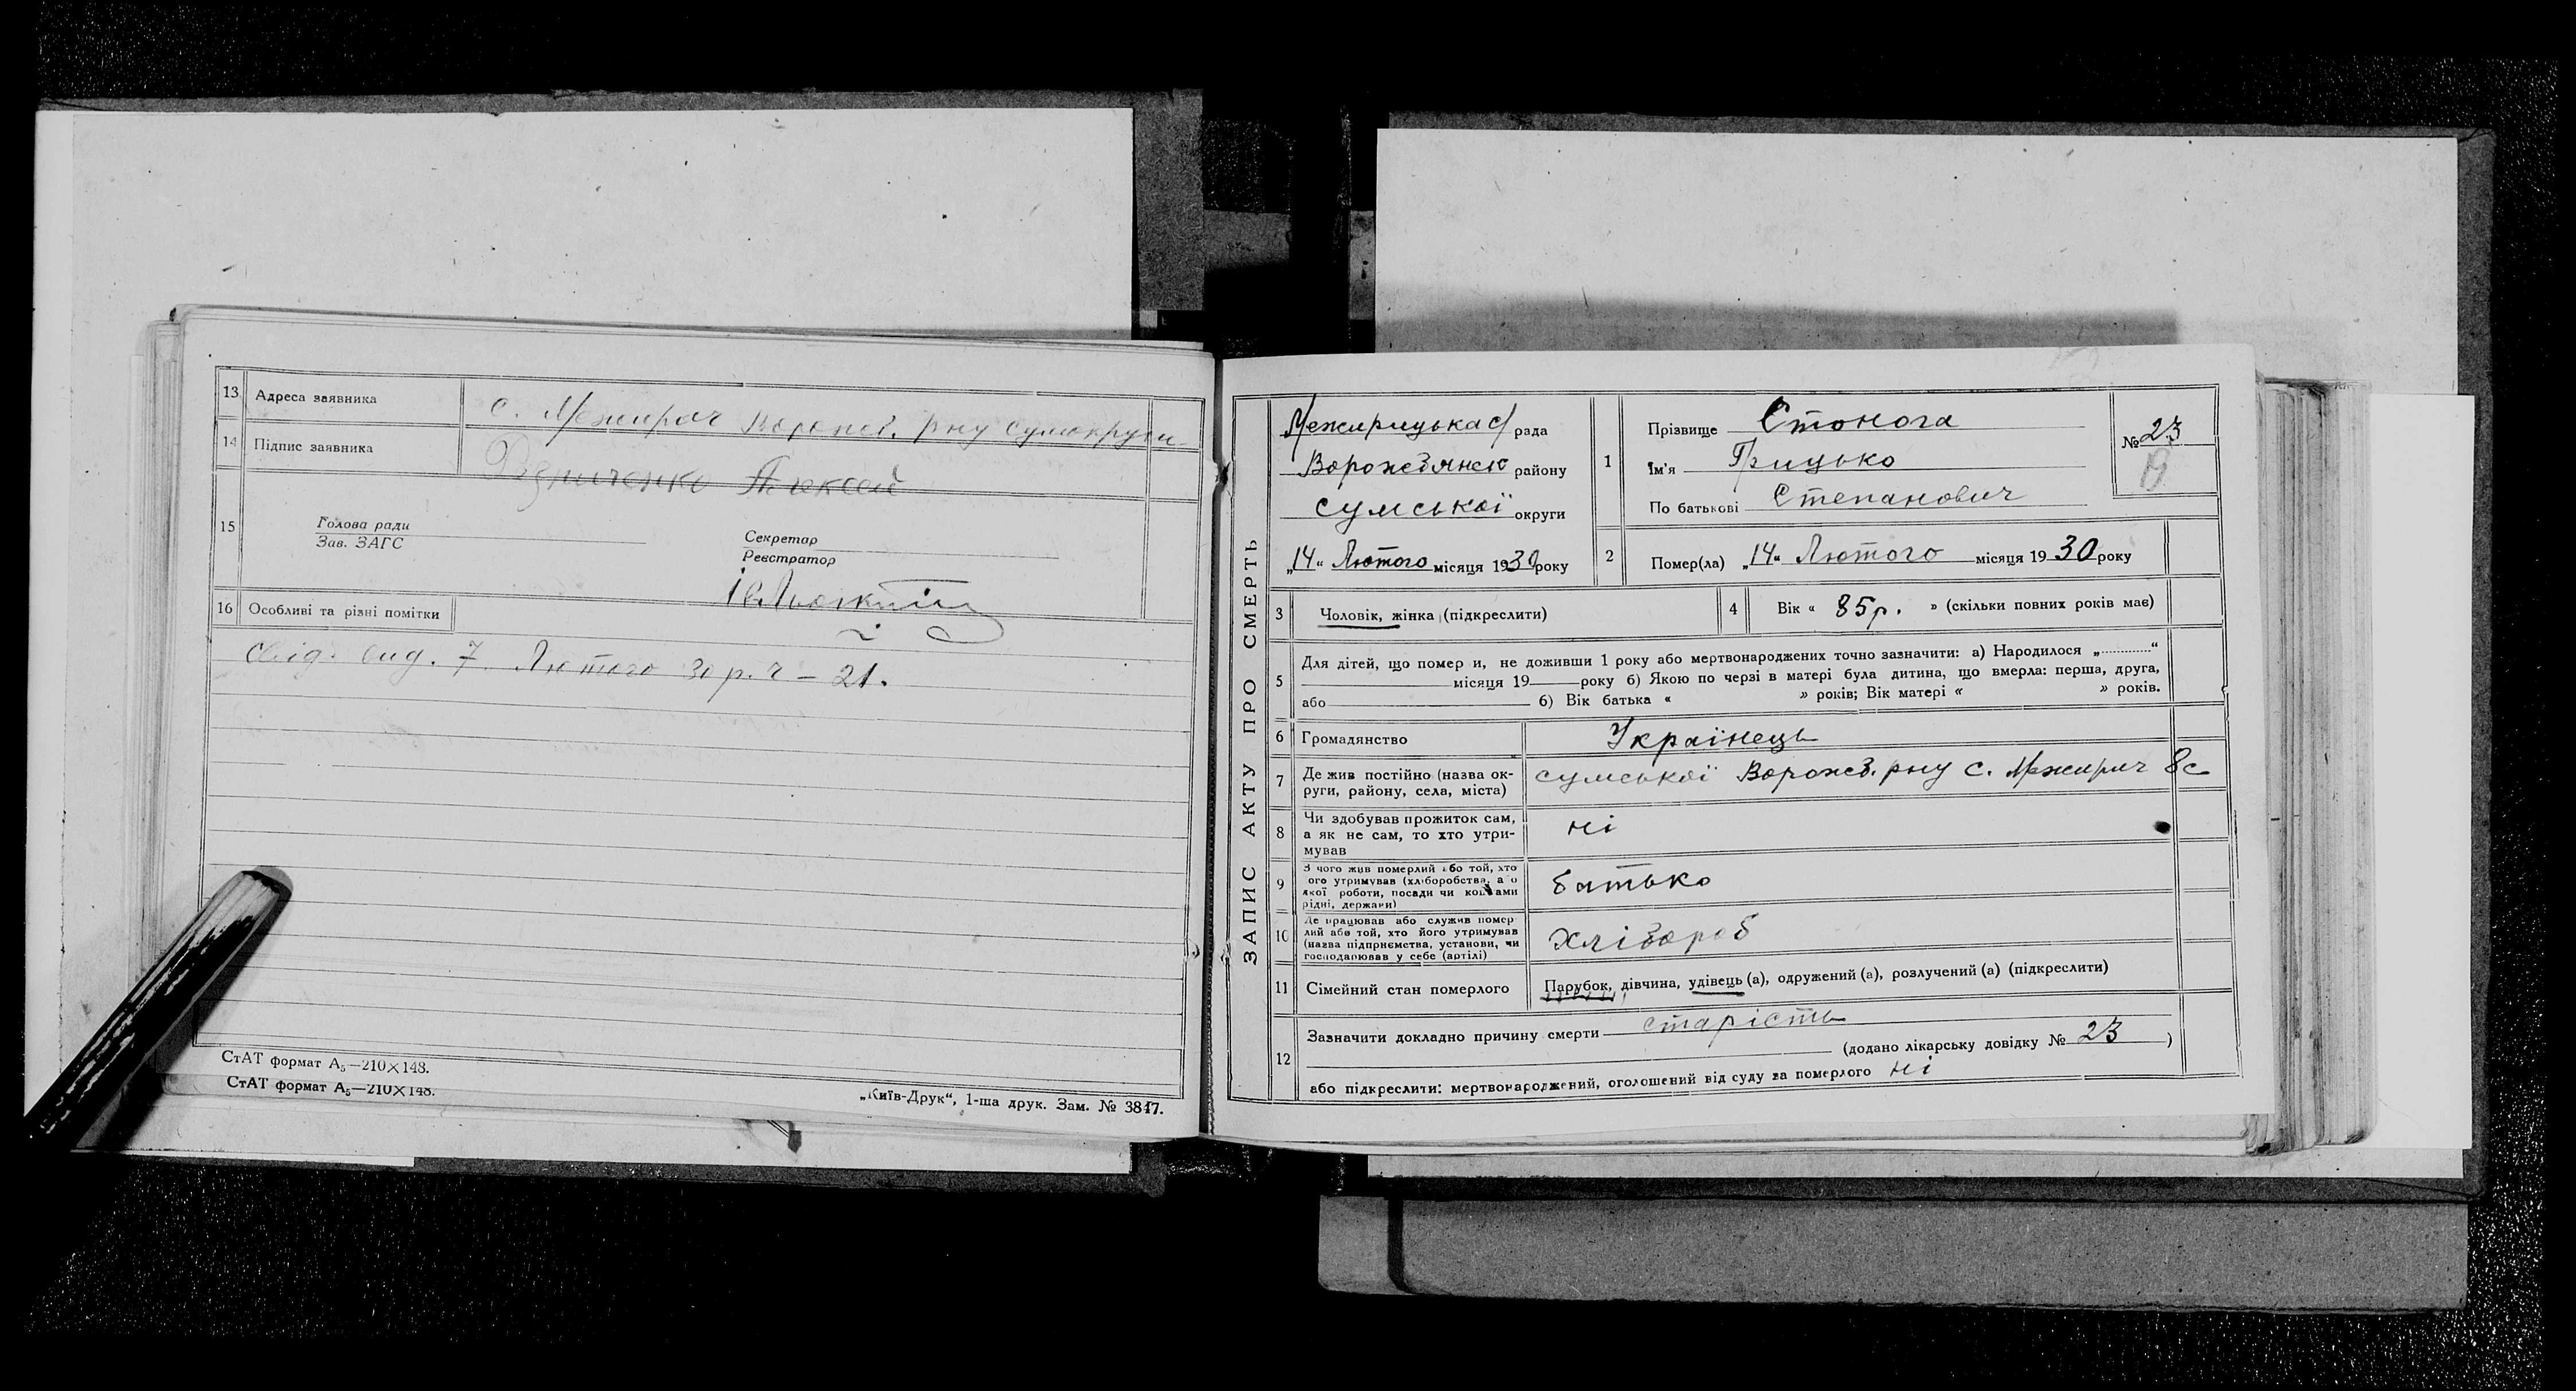 13 Адреса заявника с. Межирач Ворожб. р-ну сумокруги
14 Підпис заявника Різниченко Алексей
15 Голова ради
Зав. ЗАГС
Секретар
Реєстратор
16 Особливі та різні помітки
Свід. вид. 7 Лютого 30 р. ч – 21.
СтАТ формат А5—210×148.
СтАТ формат А5—210×148.
„Київ-Друк“, 1-ша друк. Зам. № 3847.
ЗАПИС АКТУ ПРО СМЕРТЬ
Межирицька с/ рада
Ворожбянск району
сумської округи
„14“ Лютого місяця 1930 року
1 Прізвище Стонога
Ім'я Грицько
По батькові Степанович
№ 23
2 Помер(ла) „14“ Лютого місяця 1930 року
3 Чоловік, жінка (підкреслити)
4 Вік « 85 р. » (скільки повних років має)
5 Для дітей, що помер и, не доживши 1 року або мертвонароджених точно зазначити: а) Народилося „............“
місяця 19 року б) Якою по черзі в матері була дитина, що вмерла: перша, друга,
або б) Вік батька « » років; Вік матері « » років.
6 Громадянство Українець
7 Де жив постійно (назва ок-
руги, району, села, міста) сумської Ворожб. р-ну с. Межирич
8 Чи здобував прожиток сам,
а як не сам, то хто утри-
мував ні
9 З чого жив померлий або той, хто
ого утримував (хліборобства, або
якої роботи, посади чи коштами
рідні, держави) батько
10 Де працював або служив помер
лий або той, хто його утримував
(назва підпрнємства, установи, чи
господарював у себе (артілі) хлібороб
11 Сімейний стан померлого Парубок, дівчина, удівець (а), одружений (а), розлучений (а) (підкреслити)
12 Зазначити докладно причину смерти старість
(додано лікарську довідку № 23 )
або підкреслити: мертвонароджений, оголошений від суду за померлого ні